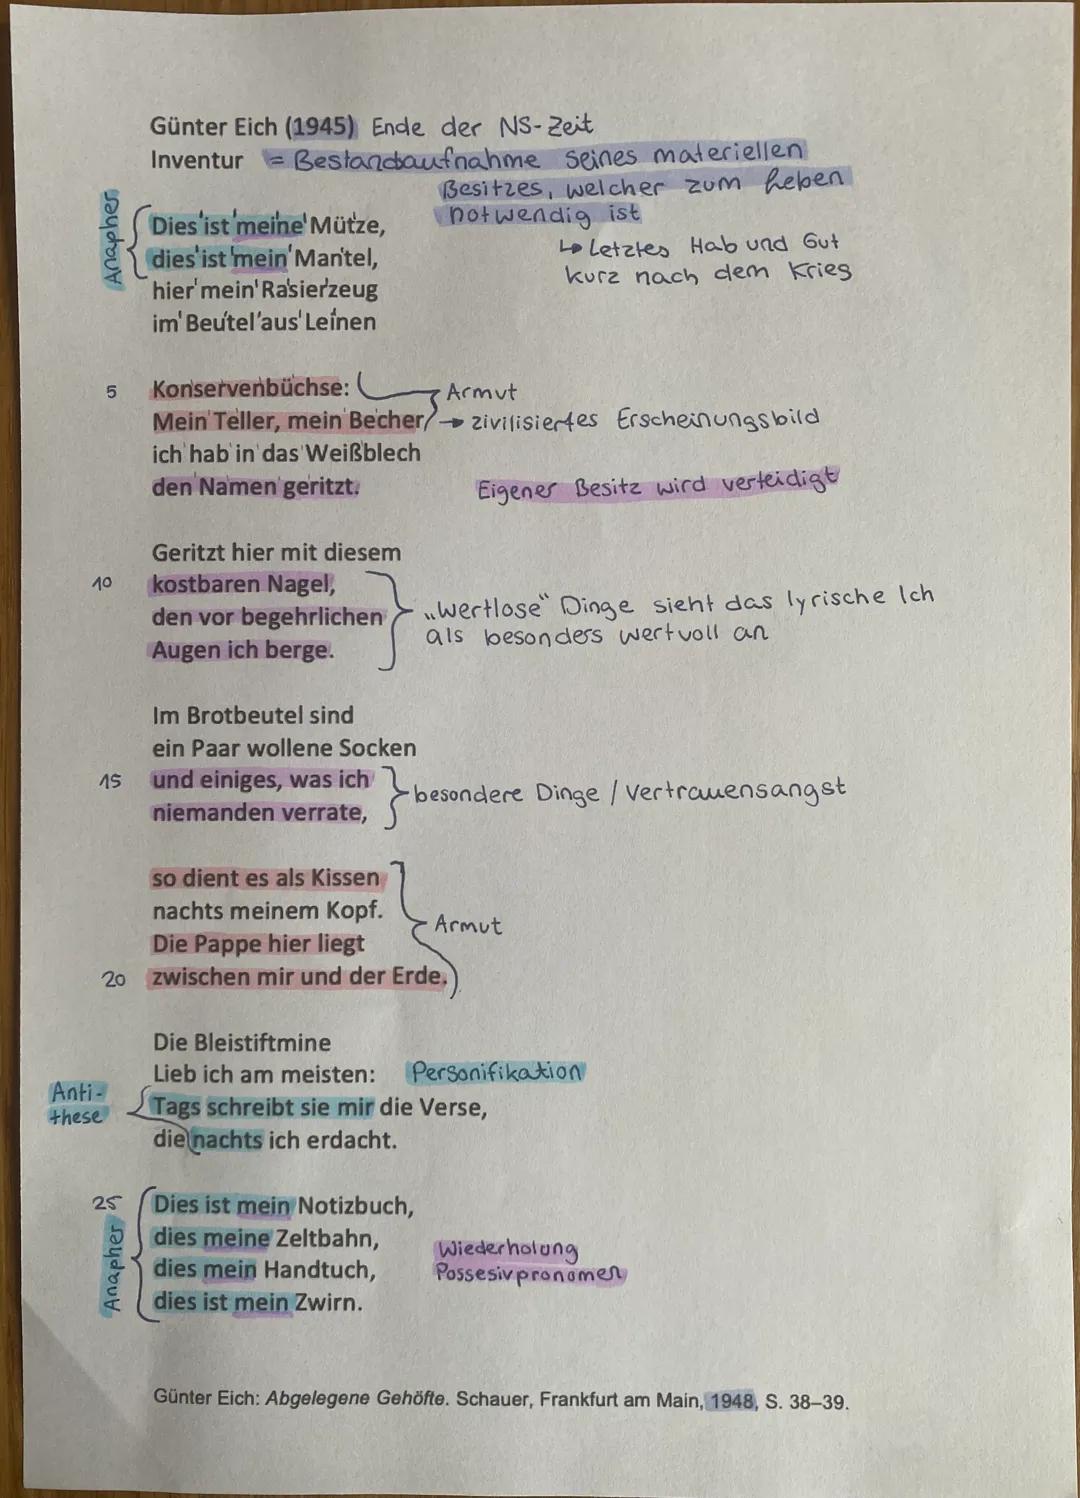 Günter Eich (1945) Ende der NS-Zeit
Inventur = Bestandsaufnahme seines materiellen
Besitzes, welcher zum Leben
notwendig ist
↳ Letztes Hab und Gut
kurz nach dem Krieg
Anapher
Dies ist meine Mütze,
dies ist mein Mantel,
hier mein Rasierzeug
im Beutel aus Leinen
5 Konservenbüchse: Armut
Mein Teller, mein Becher, → zivilisiertes Erscheinungsbild
ich hab in das Weißblech
den Namen geritzt. Eigener Besitz wird verteidigt
Geritzt hier mit diesem
10 kostbaren Nagel,
den vor begehrlichen „wertlose" Dinge sieht das lyrische Ich
Augen ich berge. als besonders wertvoll an
Im Brotbeutel sind
ein Paar wollene Socken
15 und einiges, was ich besondere Dinge / Vertrauensangst
niemanden verrate,
so dient es als Kissen
nachts meinem Kopf. Armut
Die Pappe hier liegt
20 zwischen mir und der Erde.
Die Bleistiftmine
Lieb ich am meisten: Personifikation
Anti-
these
Tags schreibt sie mir die Verse,
die nachts ich erdacht.
25 Dies ist mein Notizbuch,
Anapher
dies meine Zeltbahn, Wiederholung
dies mein Handtuch, Possesivpronomen
dies ist mein Zwirn.
Günter Eich: Abgelegene Gehöfte. Schauer, Frankfurt am Main, 1948, S. 38–39.